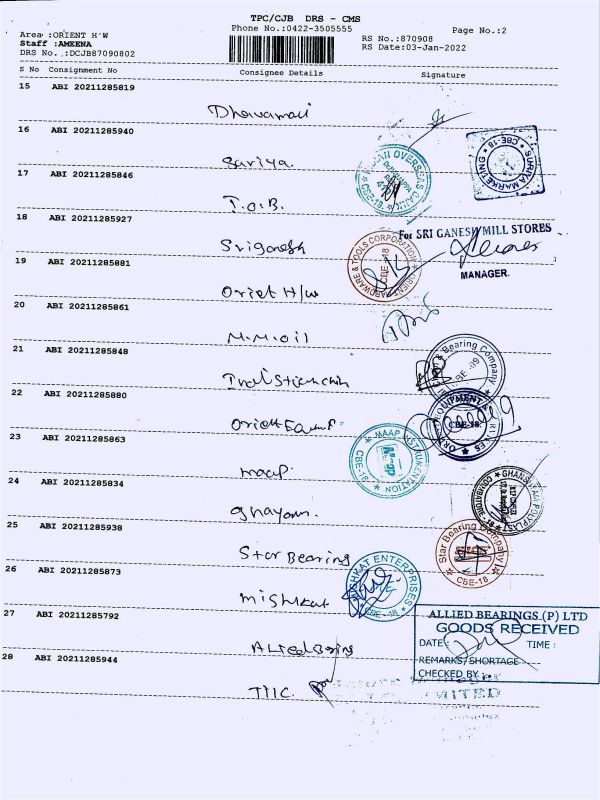 TPC/CJB DRS - CMS
Phone No.:0422-3505555
Page No.:2
Area :ORIENT H'W
RS No.:870908
Staff :AMEENA
RS Date:03-Jan-2022
DRS No..:DCJB87090802
S No Consignment No Consignee Details Signature
15 ABI 20211285819
Dhavamani
16 ABI 20211285940
Suriya.
17 ABI 20211285846
I.O.B.
INDIAN OVERSEAS BANK
SURIYA MARKETING ★ CBE-18 ★
18 ABI 20211285927
Sri Ganesh
For SRI GANESH MILL STORES
MANAGER.
19 ABI 20211285881
Orient H/w
ORIENT HARDWARE & TOOLS CORPORATION
CBE-18
20 ABI 20211285861
M.M.oil
21 ABI 20211285848
Bearing Company
22 ABI 20211285880
Orient Equip
CBE-18.
23 ABI 20211285863
Maap
MAAP INSTRUMENTATION
CBE-18
24 ABI 20211285834
Ghayam.
25 ABI 20211285938
Star Bearing
Star Bearing Company
CBE-18
26 ABI 20211285873
Mishkat
MISHKAT ENTERPRISES
CBE-18
27 ABI 20211285792
Allied Bearing
ALLIED BEARINGS (P) LTD
GOODS RECEIVED
DATE: TIME :
REMARKS/SHORTAGE
CHECKED BY
28 ABI 20211285944
TIIC.
LIMITED